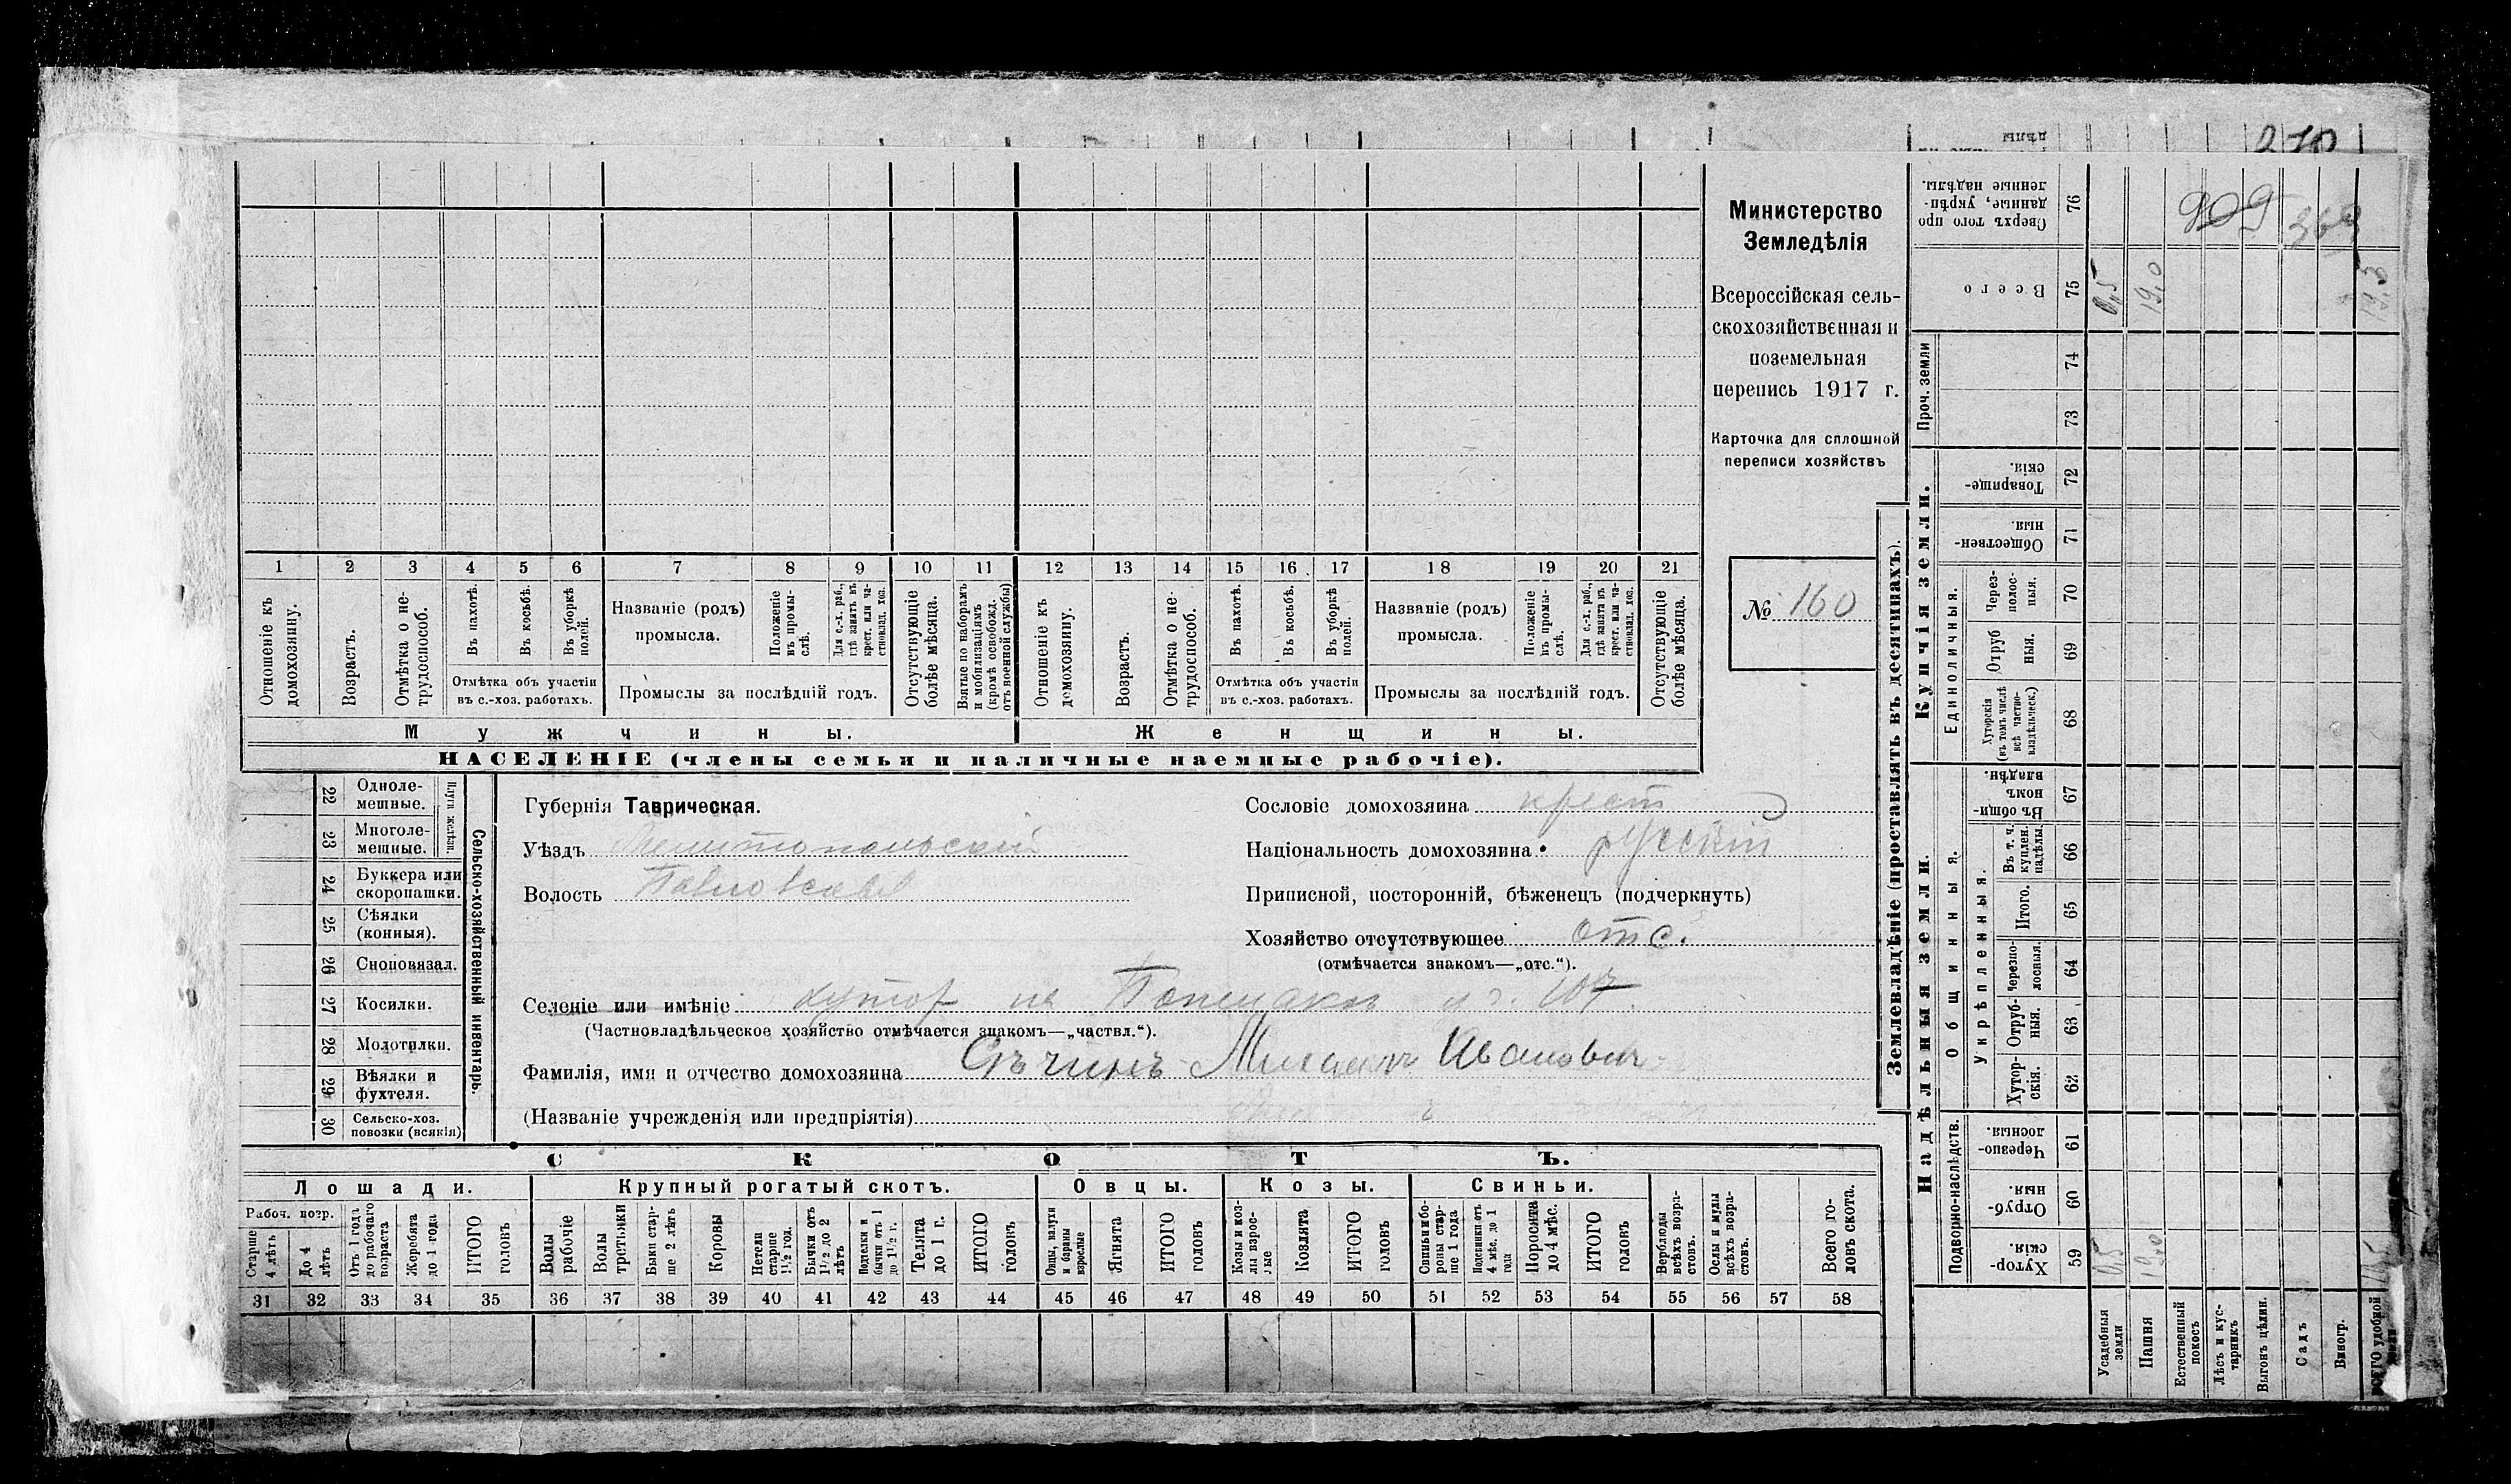 270
дѣлы
809
363
Министерство
Земледѣлія
Всероссійская сель-
скохозяйственная и
поземельная
перепись 1917 г.
Карточка для сплошной
переписи хозяйствъ
№ 160
1 2 3 4 5 6 7 8 9 10 11 12 13 14 15 16 17 18 19 20 21
Отношеніе къ домохозяину.
Возрастъ.
Отмѣтка о не-трудоспособ.
Въ пахотѣ.
Въ косьбѣ.
Въ уборкѣ полей.
Отмѣтка объ участіи
въ с.-хоз. работахъ.
Названіе (родъ)
промысла.
Положеніе въ промы-слѣ.
Для с.-х. раб., гдѣ занятъ въ крест. или ча-стновлад. хоз.
Промыслы за послѣдній годъ.
Отсутствующіе болѣе мѣсяца.
Взятые по наборамъ и мобилизаціямъ (кромѣ освобожд. отъ военной службы)
Отношеніе къ домохозяину.
Возрастъ.
Отмѣтка о не-трудоспособ.
Въ пахотѣ.
Въ косьбѣ.
Въ уборкѣ полей.
Отмѣтка объ участіи
въ с.-хоз. работахъ.
Названіе (родъ)
промысла.
Положеніе въ промы-слѣ.
Для с.-х. раб., гдѣ занята въ крест. или ча-стновлад. хоз.
Промыслы за послѣдній годъ.
Отсутствующіе болѣе мѣсяца.
Мужчины.
Женщины.
НАСЕЛЕНІЕ (члены семьи и наличные наемные рабочіе).
22 Одноле-мешные.
23 Многоле-мешные.
Плуги желѣзн.
24 Буккера или скоропашки.
25 Сѣялки (конныя).
26 Сноповязал.
27 Косилки.
28 Молотилки.
29 Вѣялки и фухтеля.
30 Сельско-хоз. повозки (всякія)
Сельско-хозяйственный инвентарь.
Губернія Таврическая.
Уѣздъ Мелитопольскій
Волость Павловская
Сословіе домохозяина крест
Національность домохозяина русскій
Приписной, посторонній, бѣженецъ (подчеркнуть)
Хозяйство отсутствующее отс.
(отмѣчается знакомъ—„отс.“).
Селеніе или имѣніе хутор на уч. 107.
(Частновладѣльческое хозяйство отмѣчается знакомъ—„частвл.“).
Фамилія, имя и отчество домохозяина Сѣчинъ Михаилъ Ивановичъ
(Названіе учрежденія или предпріятія)
СКОТЪ.
Лошади.
Крупный рогатый скотъ.
Овцы.
Козы.
Свиньи.
Рабоч. возр.
Старше 4 лѣтъ
До 4 лѣтъ
Отъ 1 года до рабочаго возраста
Жеребята до 1 года
ИТОГО головъ
Волы рабочіе
Волы третьяки
Быки стар-ше 2 лѣтъ
Коровы
Нетели старше 1½ год.
Бычки отъ 1½ до 2 лѣтъ
Подтелки и бычки отъ 1 до 1½ г.
Телята до 1 г.
ИТОГО головъ
Овцы, валухи и бараны взрослые
Ягнята
ИТОГО головъ
Козы и коз-лы взрос-лые
Козлята
ИТОГО головъ
Свиньи и бо-ровы стар-ше 1 года
Подсвинки отъ 4 мѣс. до 1 года
Поросята до 4 мѣс.
ИТОГО головъ
Верблюды всѣхъ возра-стовъ.
Ослы и мулы всѣхъ возра-стовъ.
Всего го-ловъ скота.
31 32 33 34 35 36 37 38 39 40 41 42 43 44 45 46 47 48 49 50 51 52 53 54 55 56 57 58
Землевладѣніе (проставлять въ десятинахъ).
Сверхъ того про данные, укрѣп-ленные надѣлы. 76
Всего 75 0,5 19,0 19,5
Проч. земли
74
73
Купчія земли.
Товарище-скія. 72
Обществен-ныя. 71
Единоличныя.
Через-полос-ныя. 70
Отруб ныя. 69
Хуторскія (въ томъ числѣ всѣ частно-владѣльческ.) 68
Надѣльныя земли.
Общинныя.
Въ общин-номъ владѣн. 67
Укрѣпленныя.
Въ т. ч. куплен. надѣлы. 66
Итого. 65
Черезпо-лосныя. 64
Отруб-ныя. 63
Хутор-скія. 62
Подворно-наслѣдств.
Черезпо-лосныя. 61
Отруб-ныя. 60
Хутор-скія. 59 0,5 19,0
Усадебныя земли
Пашня
Естественный покосъ
Лѣсъ и кус-тарникъ
Выгонъ цѣлин.
Садъ
Виногр.
ВСЕГО удобной земли